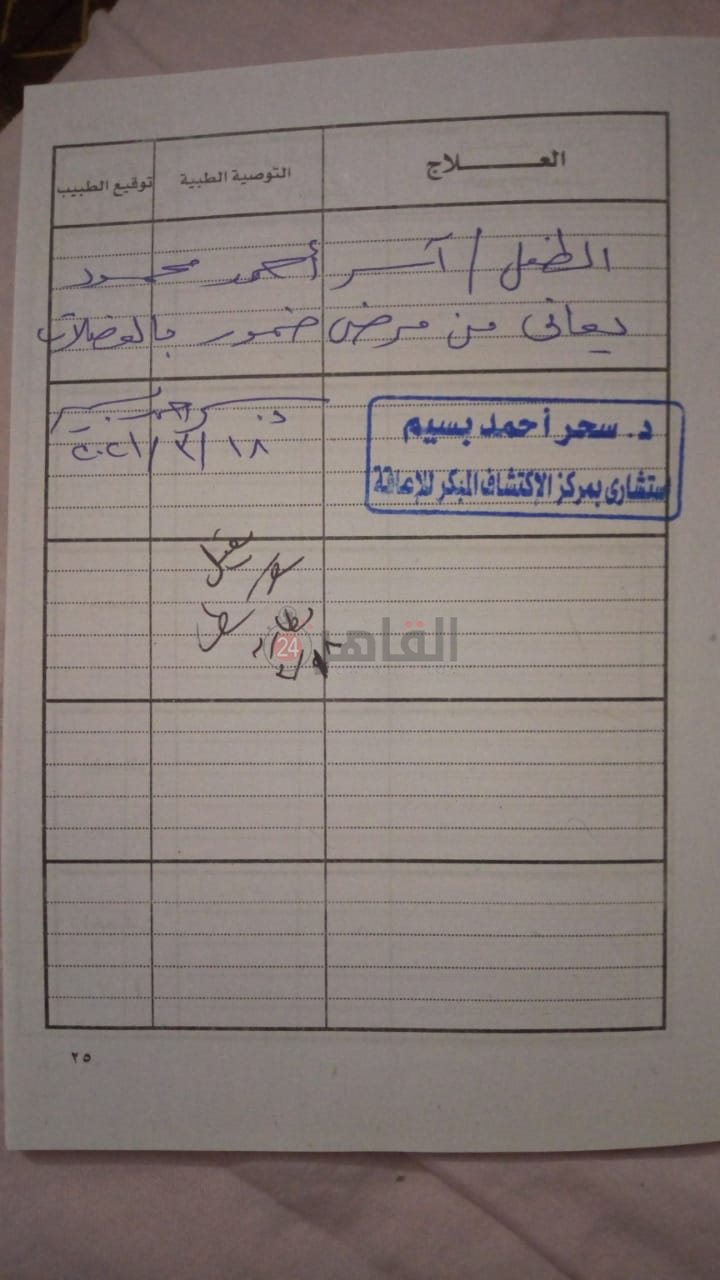 العـــــلاج التوصية الطبية توقيع الطبيب
الطفل / آسر أحمد محمود
يعانى من مرض ضمور بالعضلات
د. سحر أحمد بسيم
١٨ / ٣ / ٢٠٢١
د. سحر أحمد بسيم
استشارى بمركز الاكتشاف المبكر للإعاقة
القاهرة 24
٢٥